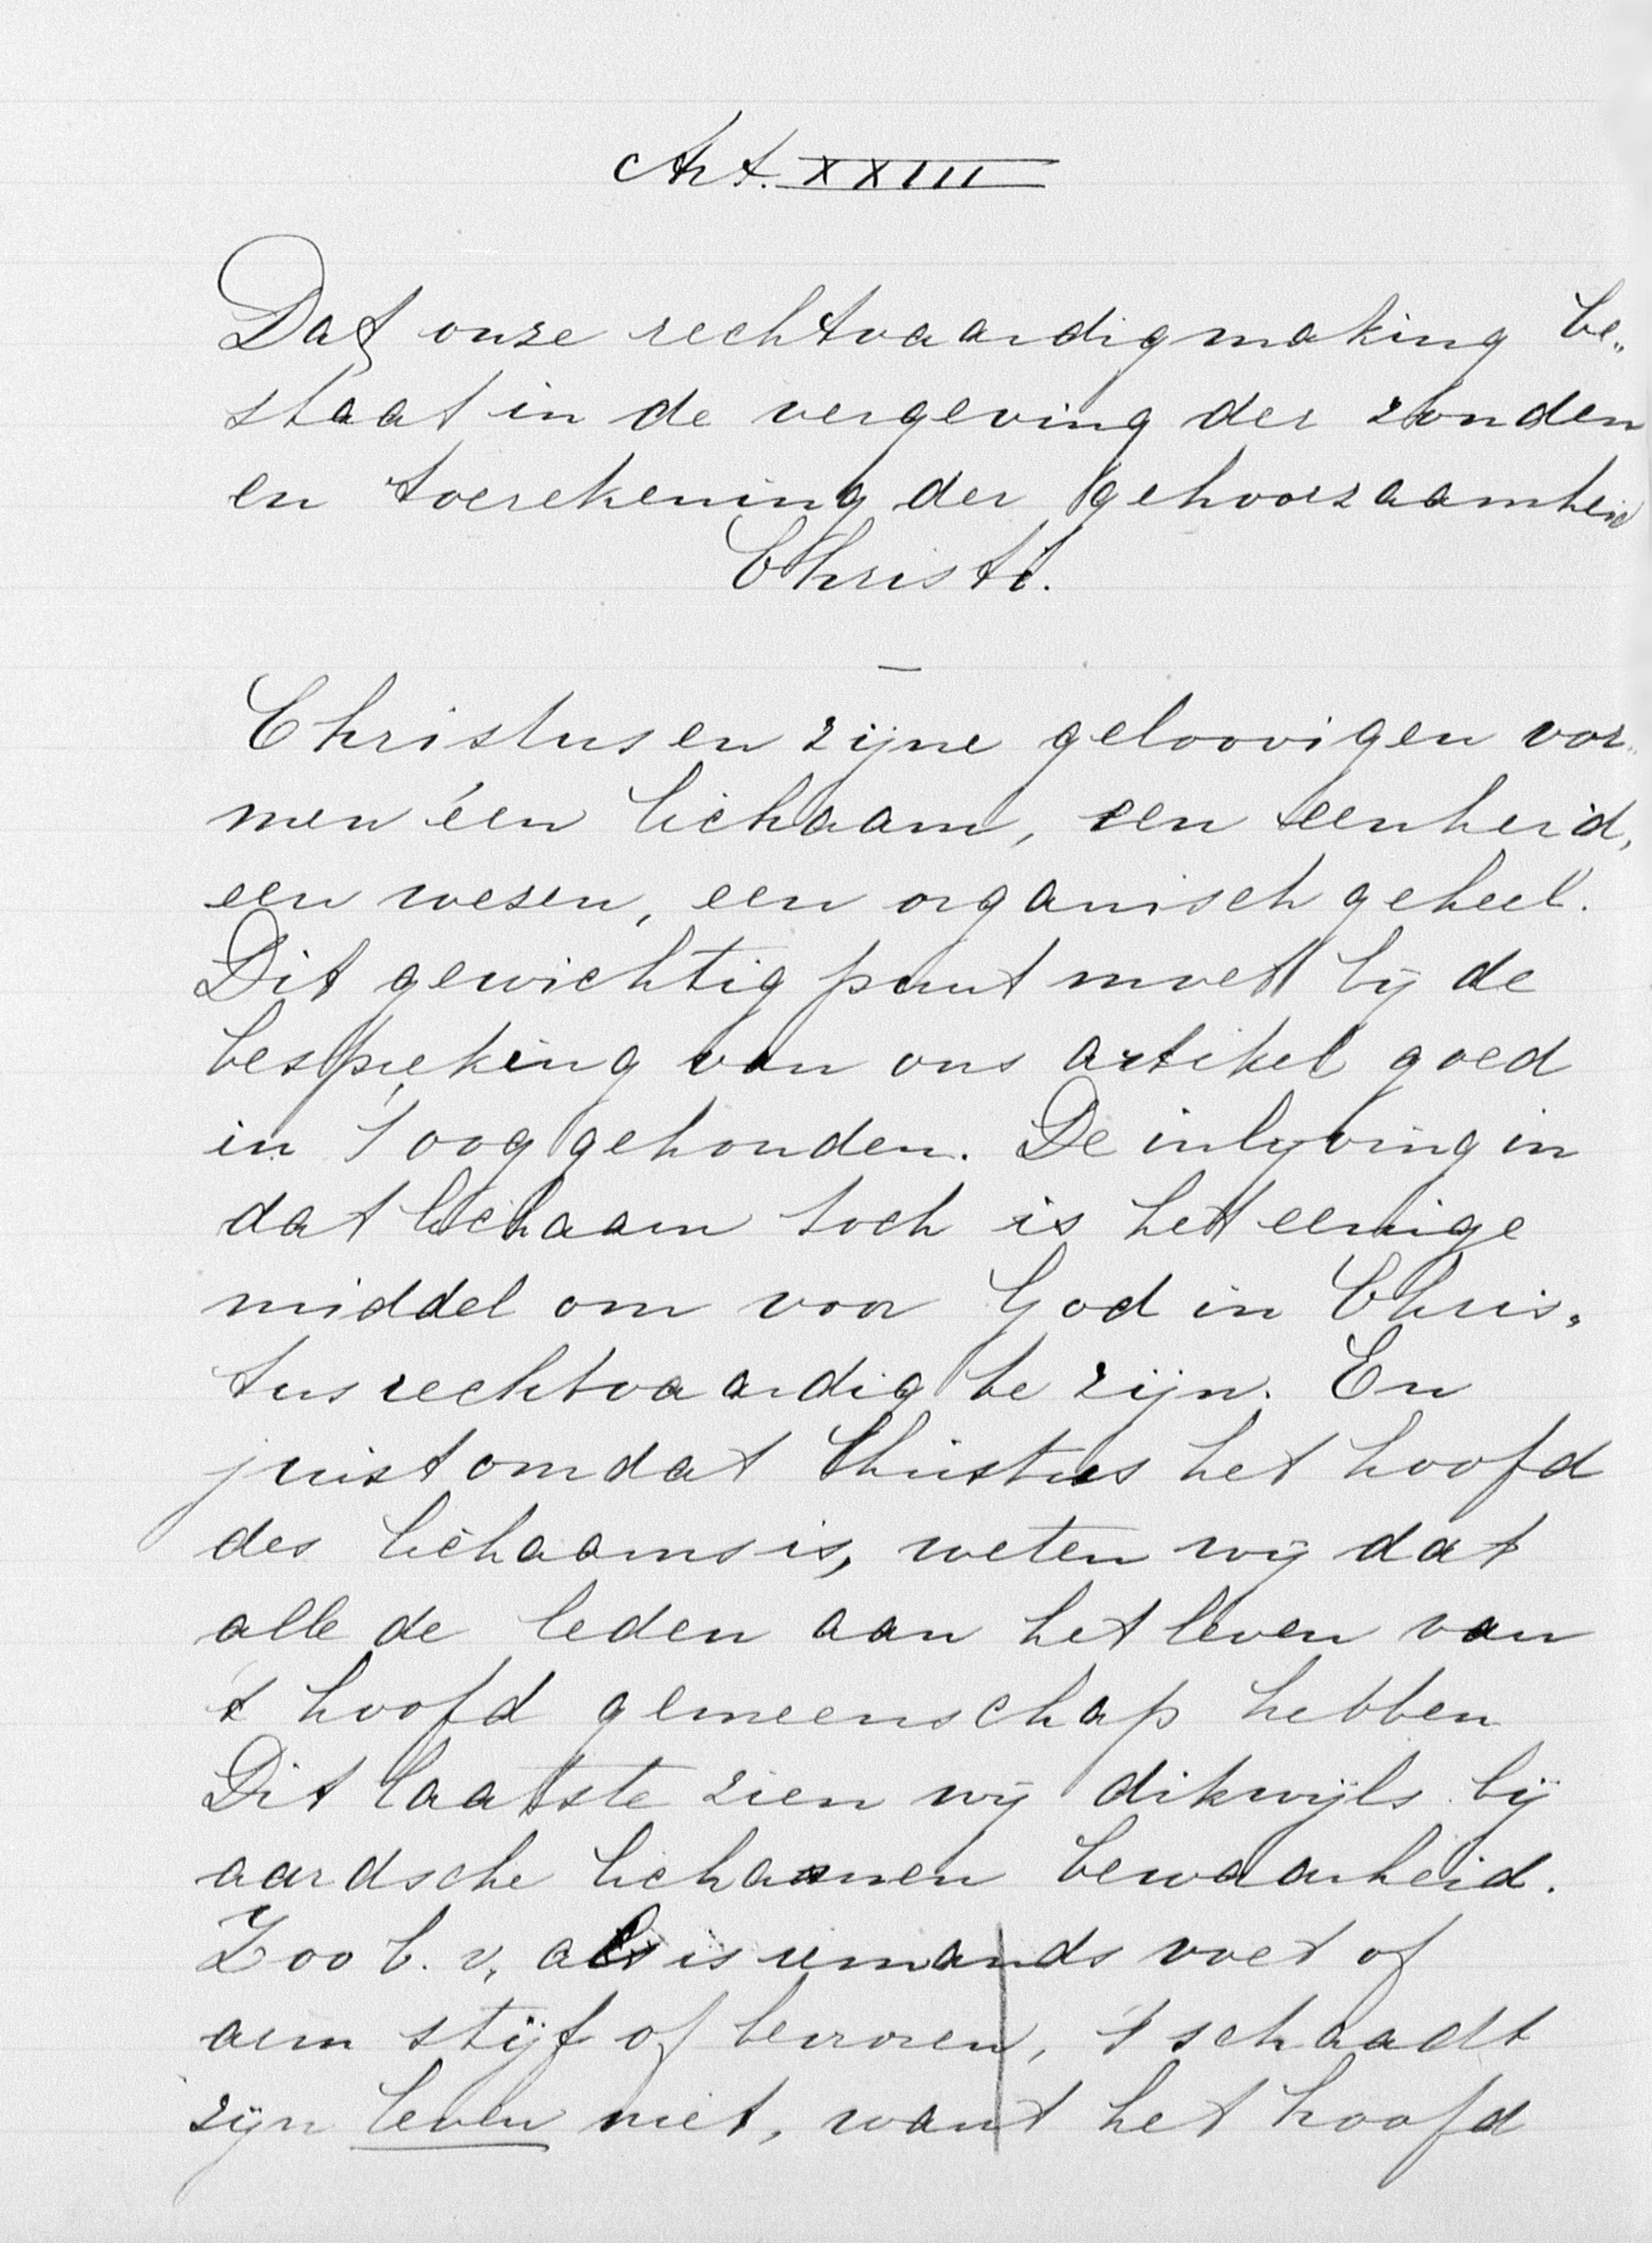 Art. XXIII
Dat onze rechtvaardigmaking be„
staat in de vergeving der zonden
en toerekening der gehoorzaamheid
Christi.
—
Christus en zijne geloovigen vor„
men éen lichaam, een eenheid,
een wezen, een organisch geheel.
Dit gewichtig punt moet bij de
bespreking van ons artikel goed
in 't oog gehouden. De inlijving in
dat lichaam toch is het eenige
middel om voor God in Chris„
tus rechtvaardig te zijn. En
juist omdat Christus het hoofd
des lichaams is, weten wij dat
alle de leden aan het leven van
't hoofd gemeenschap hebben
Dit laatste zien wij dikwijls bij
aardsche lichamen bewaarheid.
Zoo b. v. als is iemands voet of
arm stijf of bevroren, 't schaadt
zijn leven niet, want het hoofd